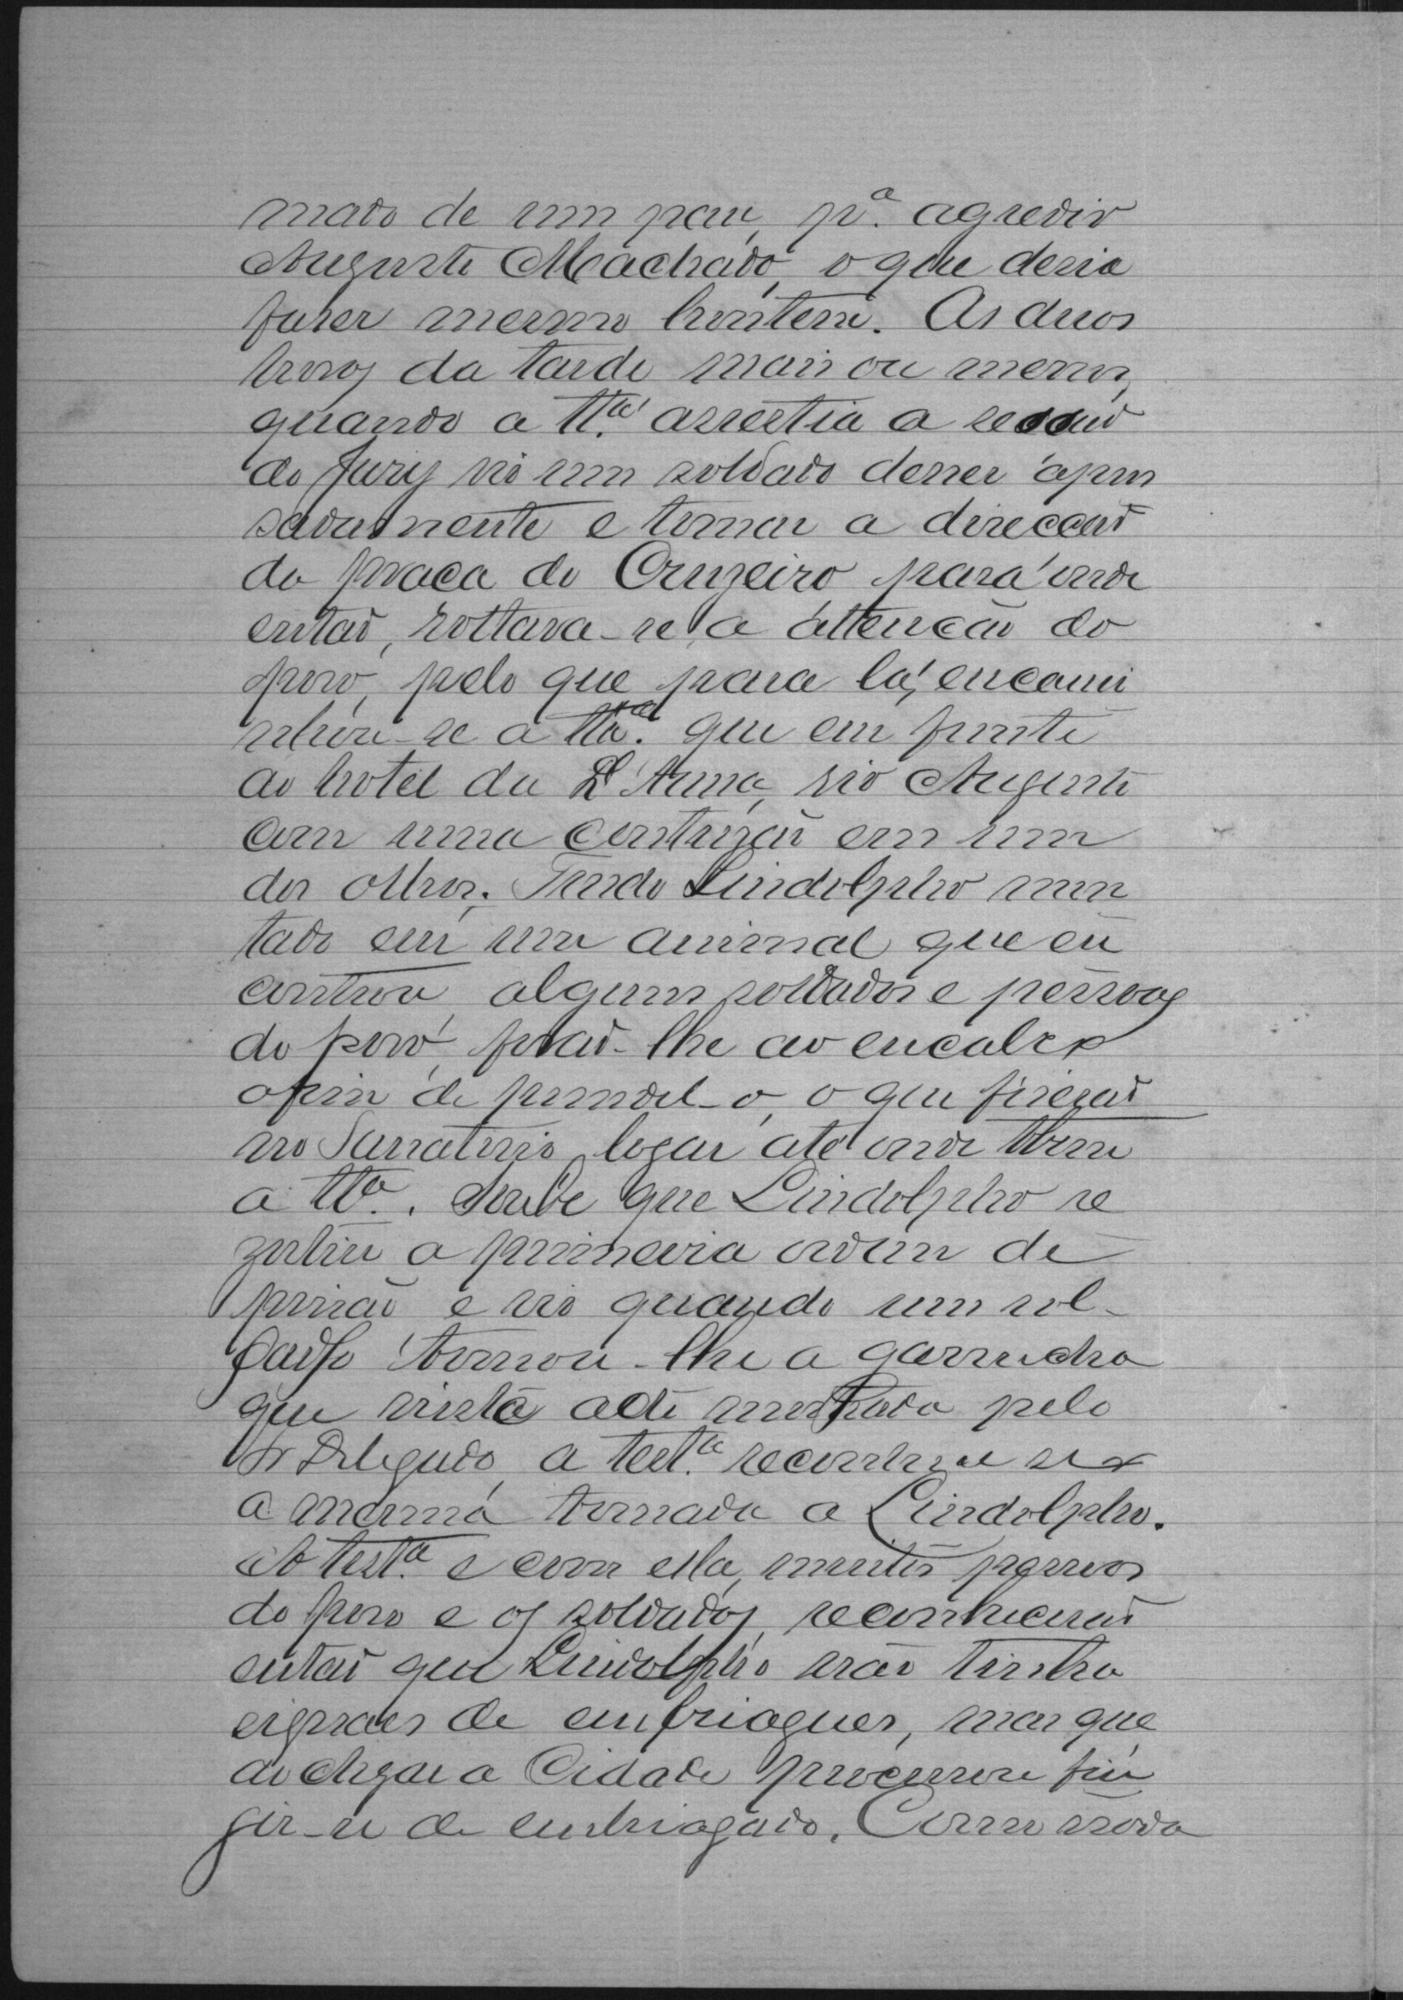 mado de um páu, p.ª agredir
Augusto Machado, o que deria
faser mesmo hontem. As duas
horas da tarde mais ou menos,
quando a tt.ª assestia a sessão
do Jury vio um soldado desser apres
sadamente e tomar a direccão
da praca do Cruzeiro para onde
entaõ, voltava-se a attencão do
povo, pelo que para lá, encami
nhou-se a tt.ª que em frente
ao hotel da D Anna, vio Augusto
com uma contusão em um
dos olhos. Tendo Lindolpho mon
tado em um animal que en
controu, alguns soldados e pessoas
do povo, foraõ-lhe ao encalço
afim de prendel-o, o que fiseraõ
no Sanatorio, logar até onde tbem
a tt.ª. Soube que Lindolpho re
zistiu a primeira ordem de
prisão e vio quando um sol-
dado tomou-lhe a garrucha
que n'esta acto mostrada pelo
Dr Delegado, a test.ª reconhece ser
a mesma tomada a Lindolpho.
A test.ª e com ella, muitas pessoas
do povo e os soldados, reconheceraõ
entaõ que Lindolpho não tinha
signaes de embriagues, mas que
ao chegar a Cidade procurou fin
gir-se de embriagado. Como nada